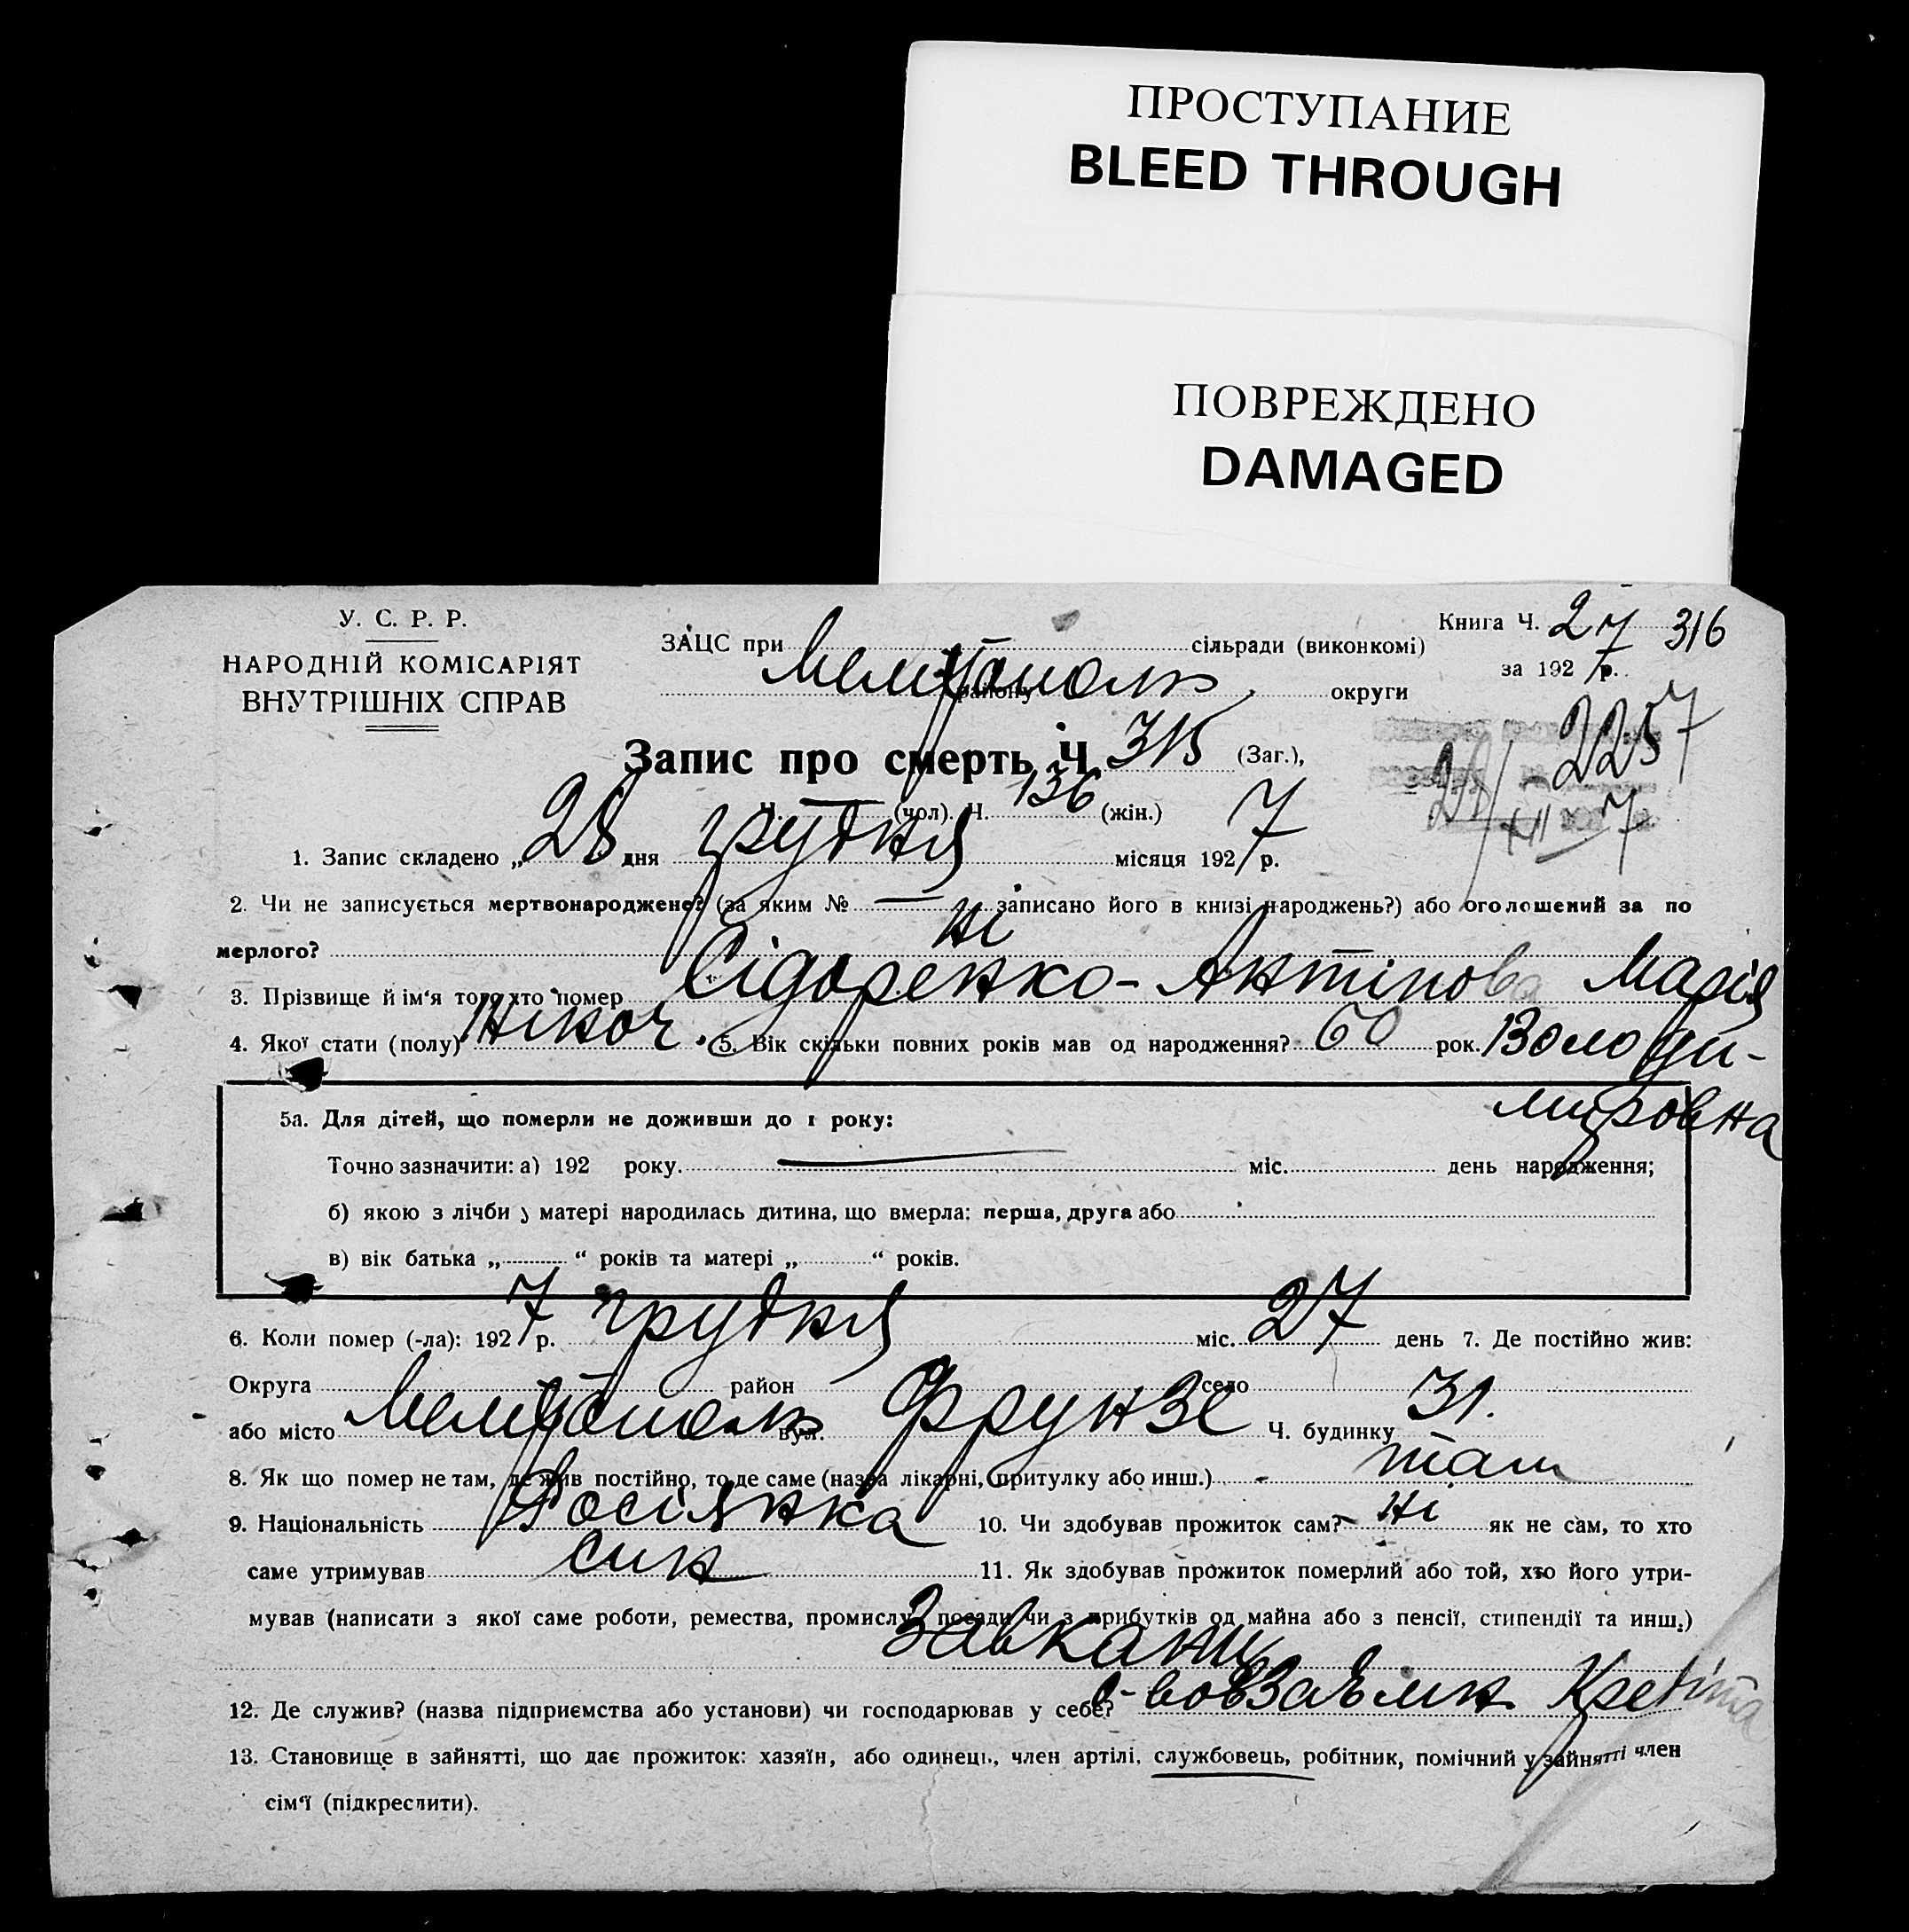 ПРОСТУПАНИЕ
BLEED THROUGH
ПОВРЕЖДЕНО
DAMAGED
У. С. Р. Р.
НАРОДНІЙ КОМІСАРІЯТ
ВНУТРІШНІХ СПРАВ
Книга Ч. 27 316
за 1927 р.
ЗАЦС при сільради (виконкомі)
Мелітополь району округи
Запис про смерть Ч. 315 (Заг.),
2257
Ч. — (чол). Ч. 136 (жін.)
28/XII 7
1. Запис складено „28 дня грудня місяця 1927 р.
2. Чи не записується мертвонароджене? (за яким № — записано його в книзі народжень?) або оголошений за по
мерлого? Ні
3. Прізвище й ім'я того хто помер Сідоренко-Антіпова Марія
4. Якої стати (полу) Жіноч. 5. Вік скільки повних років мав од народження? 60 рок. Володи-
мировна
5а. Для дітей, що померли не доживши до 1 року:
Точно зазначити: а) 192 року. — міс. день народження;
б) якою з лічби у матері народилась дитина, що вмерла: перша, друга або
в) вік батька „ “ років та матері „ “ років.
6. Коли помер (-ла): 1927 р. грудня міс. 27 день 7. Де постійно жив:
Округа район село
або місто Мелітополь вул. Фрунзе Ч. будинку 31.
8. Як що помер не там, де жив постійно, то де саме (назва лікарні, притулку або инш.) - там
9. Національність Росіянка 10. Чи здобував прожиток сам? Ні як не сам, то хто
саме утримував син 11. Як здобував прожиток померлий або той, хто його утри-
мував (написати з якої саме роботи, ремества, промислу, посади чи з прибутків од майна або з пенсії, стипендії та инш.)
Завканц
12. Де служив? (назва підприємства або установи) чи господарював у себе? о-вовзаємн Кредіта
13. Становище в зайнятті, що дає прожиток: хазяїн, або одинець, член артілі, службовець, робітник, помічний у зайнятті член
сім'ї (підкреслити).